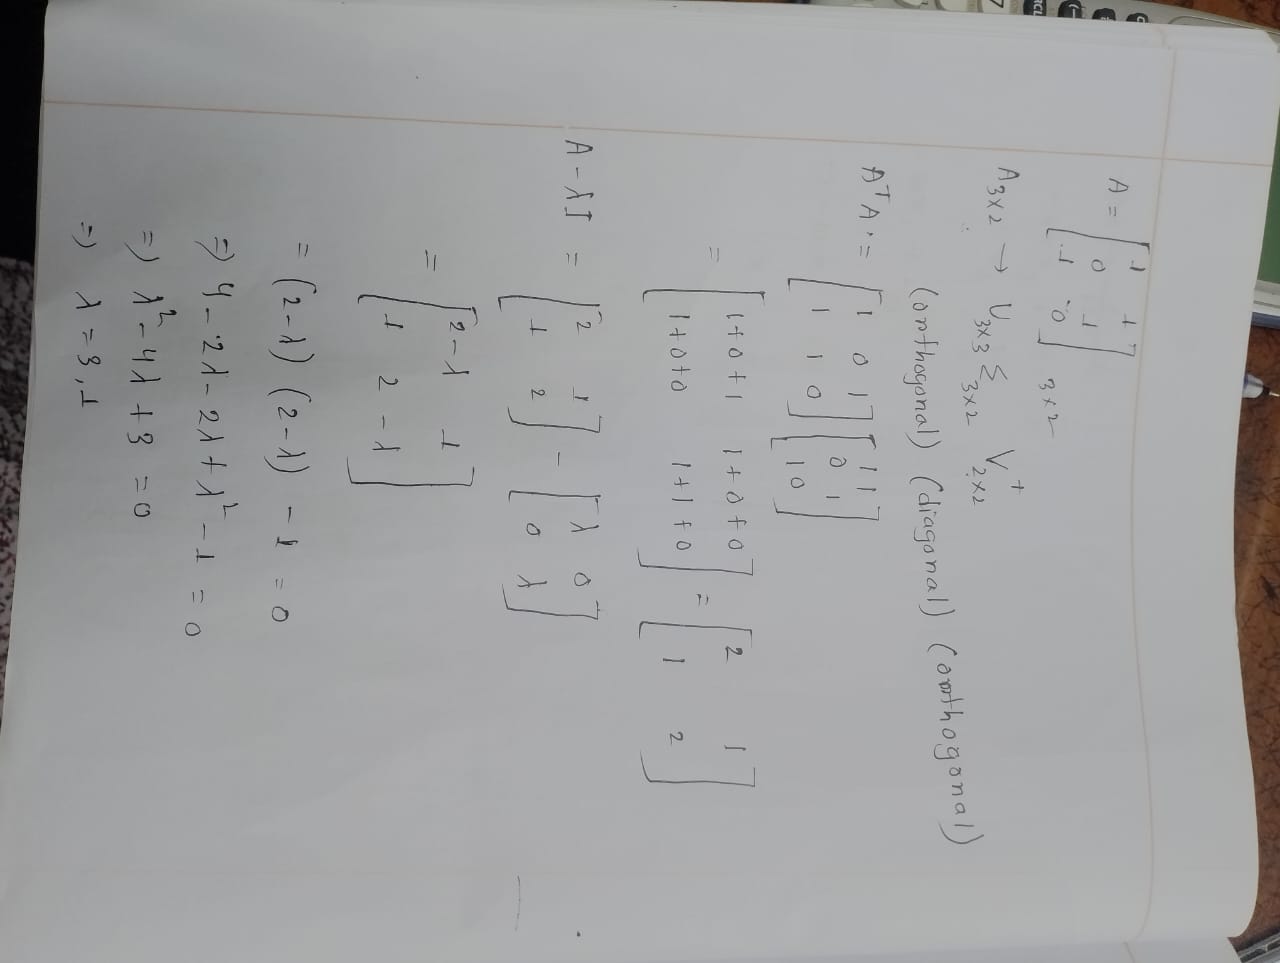 A = [ 1 1
0 1
1 0 ] 3×2
A3×2 → U3×3 Σ3×2 V2×2^T
(orthogonal) (diagonal) (orthogonal)
A^T A = [ 1 0 1
1 1 0 ] [ 1 1
0 1
1 0 ]
= [ 1+0+1 1+0+0
1+0+0 1+1+0 ] = [ 2 1
1 2 ]
A - λI = [ 2 1
1 2 ] - [ λ 0
0 λ ]
= [ 2-λ 1
1 2-λ ]
= (2-λ) (2-λ) - 1 = 0
⇒ 4 - 2λ - 2λ + λ² - 1 = 0
⇒ λ² - 4λ + 3 = 0
⇒ λ = 3, 1